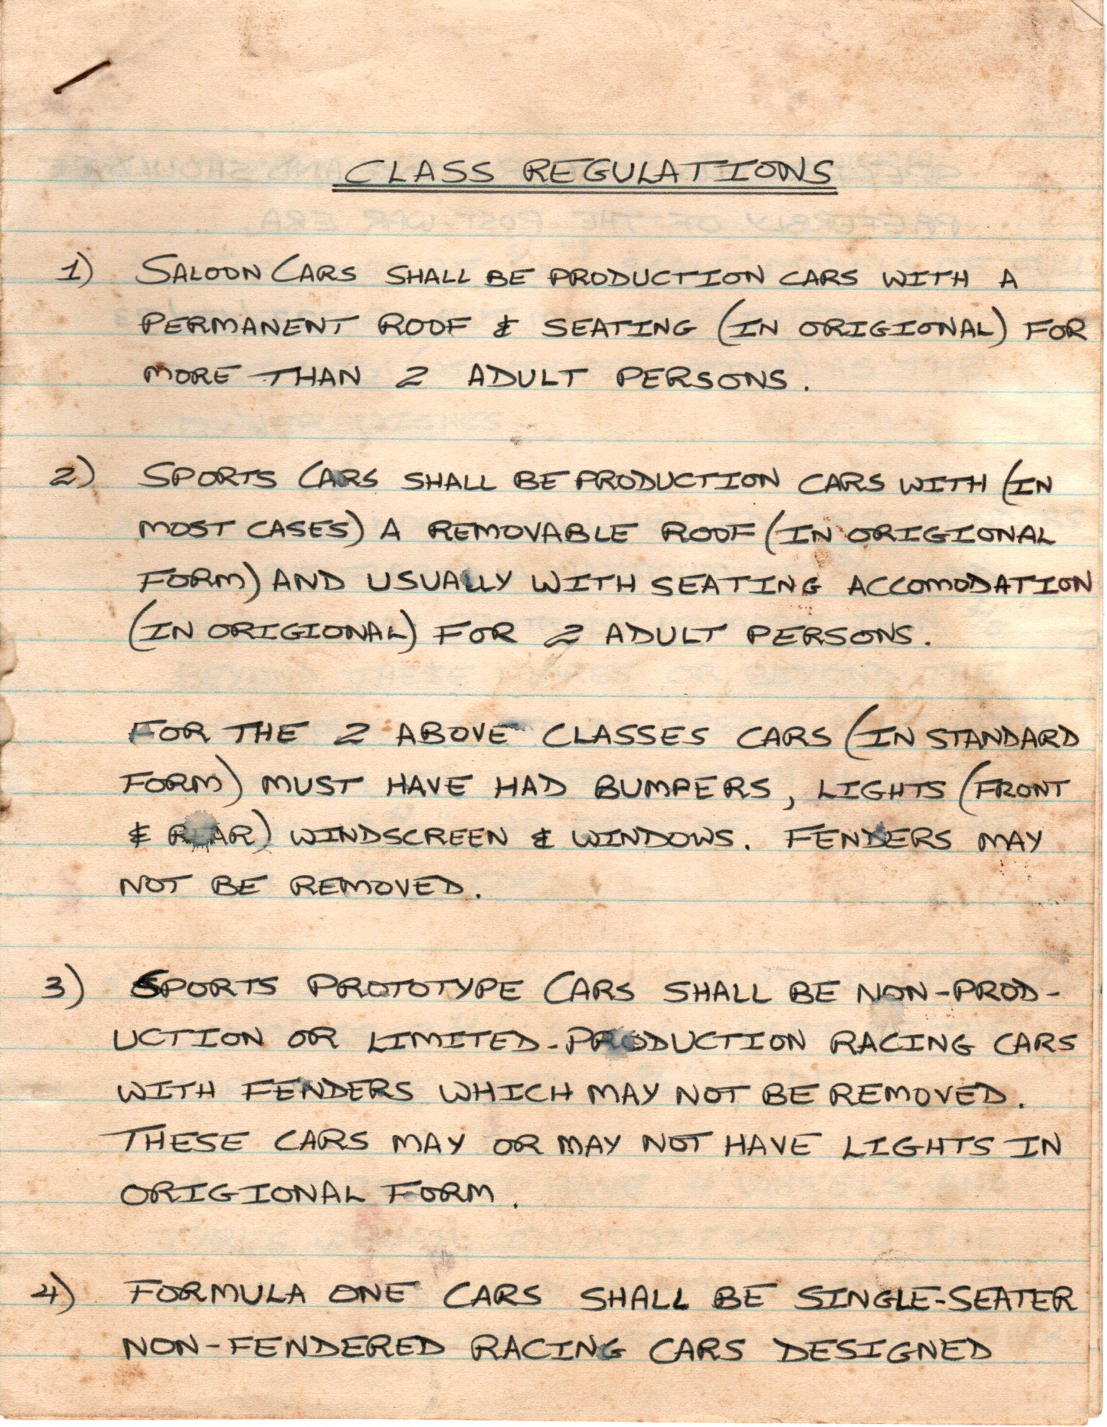 CLASS REGULATIONS
1) SALOON CARS SHALL BE PRODUCTION CARS WITH A
PERMANENT ROOF & SEATING (IN ORIGIONAL) FOR
MORE THAN 2 ADULT PERSONS.
2) SPORTS CARS SHALL BE PRODUCTION CARS WITH (IN
MOST CASES) A REMOVABLE ROOF (IN ORIGIONAL
FORM) AND USUALLY WITH SEATING ACCOMODATION
(IN ORIGIONAL) FOR 2 ADULT PERSONS.
FOR THE 2 ABOVE CLASSES CARS (IN STANDARD
FORM) MUST HAVE HAD BUMPERS, LIGHTS (FRONT
& REAR) WINDSCREEN & WINDOWS. FENDERS MAY
NOT BE REMOVED.
3) SPORTS PROTOTYPE CARS SHALL BE NON-PROD-
UCTION OR LIMITED-PRODUCTION RACING CARS
WITH FENDERS WHICH MAY NOT BE REMOVED.
THESE CARS MAY OR MAY NOT HAVE LIGHTS IN
ORIGIONAL FORM.
4) FORMULA ONE CARS SHALL BE SINGLE-SEATER
NON-FENDERED RACING CARS DESIGNED